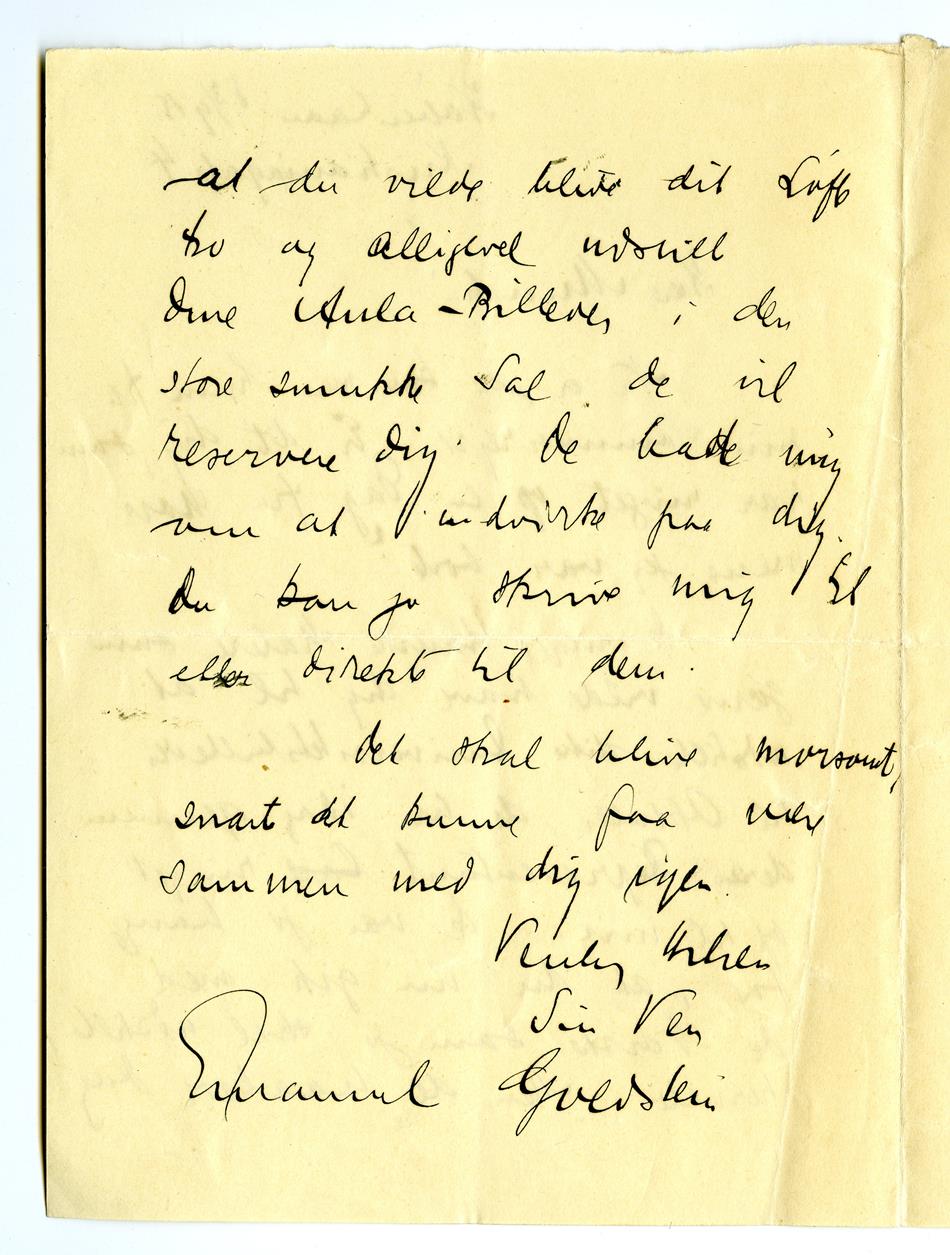 at du vilde blive dit Løfte
tro og alligevel udstille
Dine Aula-Billeder i den
store smukke Sal de vil
reservere Dig. De bade mig
om at indvirke paa dig.
Du kan jo skrive mig til
eller direkte til dem.
Det skal blive morsomt,
snart at kunne faa være
sammen med dig igen.
Venlig Hilsen
Din Ven
Emanuel Goldstein